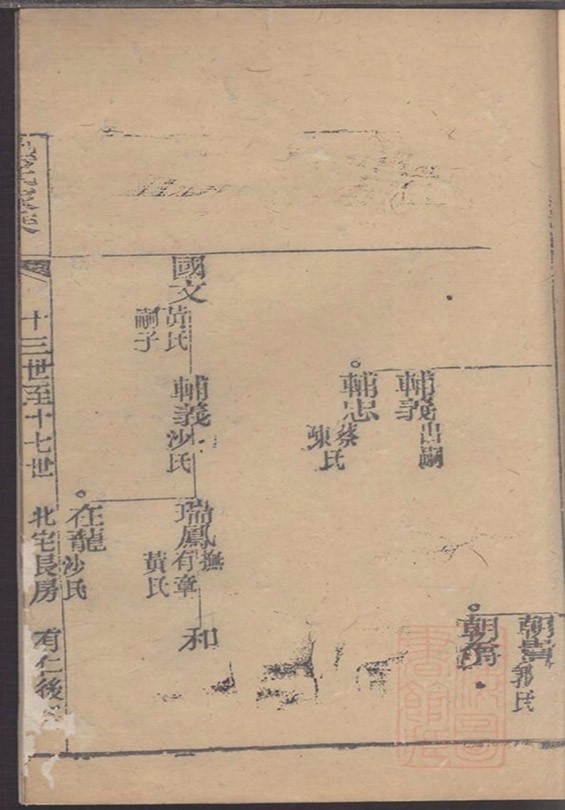 朝貴
郭氏
輔義
出嗣
輔忠
蔡
陳氏
國文
黃氏
嗣子
輔義
沙氏
瑞鳳
撫
有章
黃氏
和
在龍
沙氏
十三世至十七世
北宅長房
有仁後